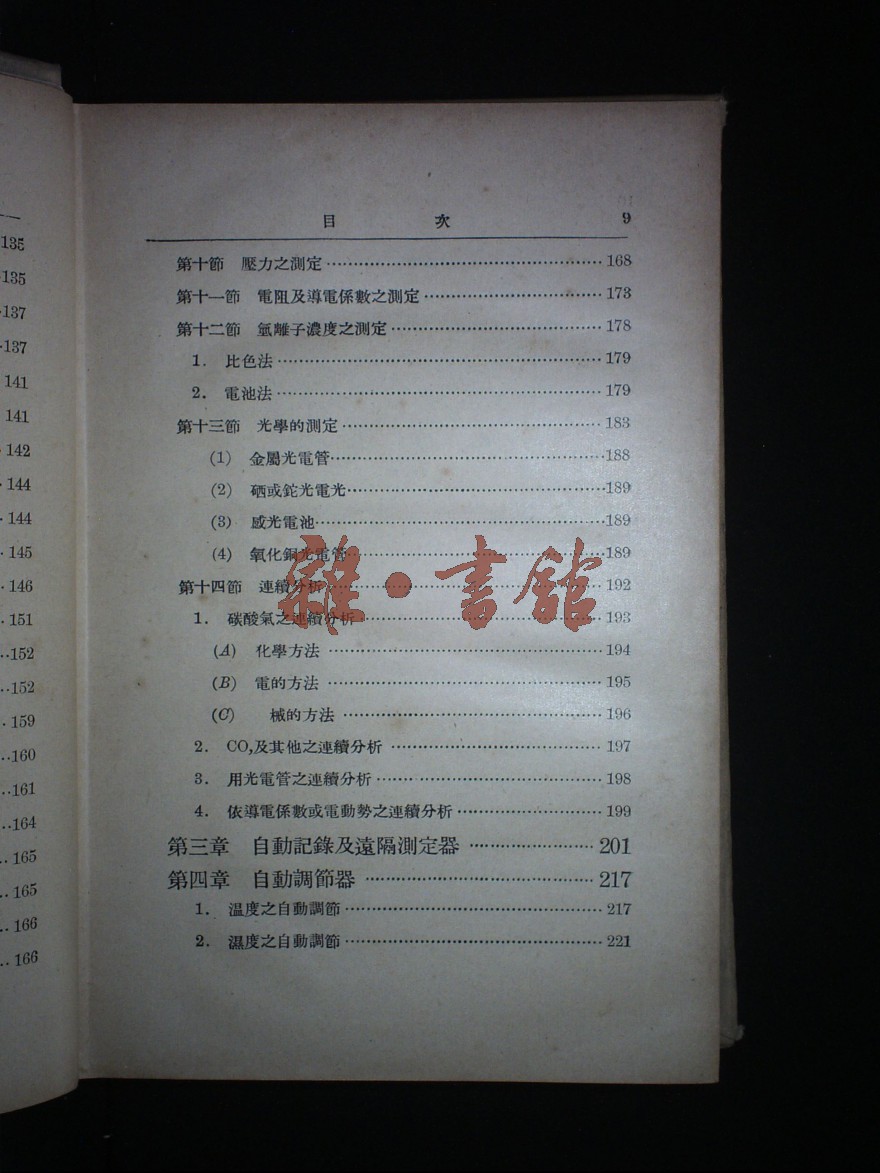 135
135
137
137
141
141
142
144
144
145
146
151
152
152
159
160
161
164
165
165
166
166
目 次 9
第十節 壓力之測定 168
第十一節 電阻及導電係數之測定 173
第十二節 氫離子濃度之測定 178
1. 比色法 179
2. 電池法 179
第十三節 光學的測定 183
(1) 金屬光電管 188
(2) 硒或鉈光電光 189
(3) 感光電池 189
(4) 氧化銅光電管 189
第十四節 連續分析 192
1. 碳酸氣之連續分析 193
(A) 化學方法 194
(B) 電的方法 195
(C) 械的方法 196
2. CO,及其他之連續分析 197
3. 用光電管之連續分析 198
4. 依導電係數或電動勢之連續分析 199
第三章 自動記錄及遠隔測定器 201
第四章 自動調節器 217
1. 温度之自動調節 217
2. 濕度之自動調節 221
雜·書館